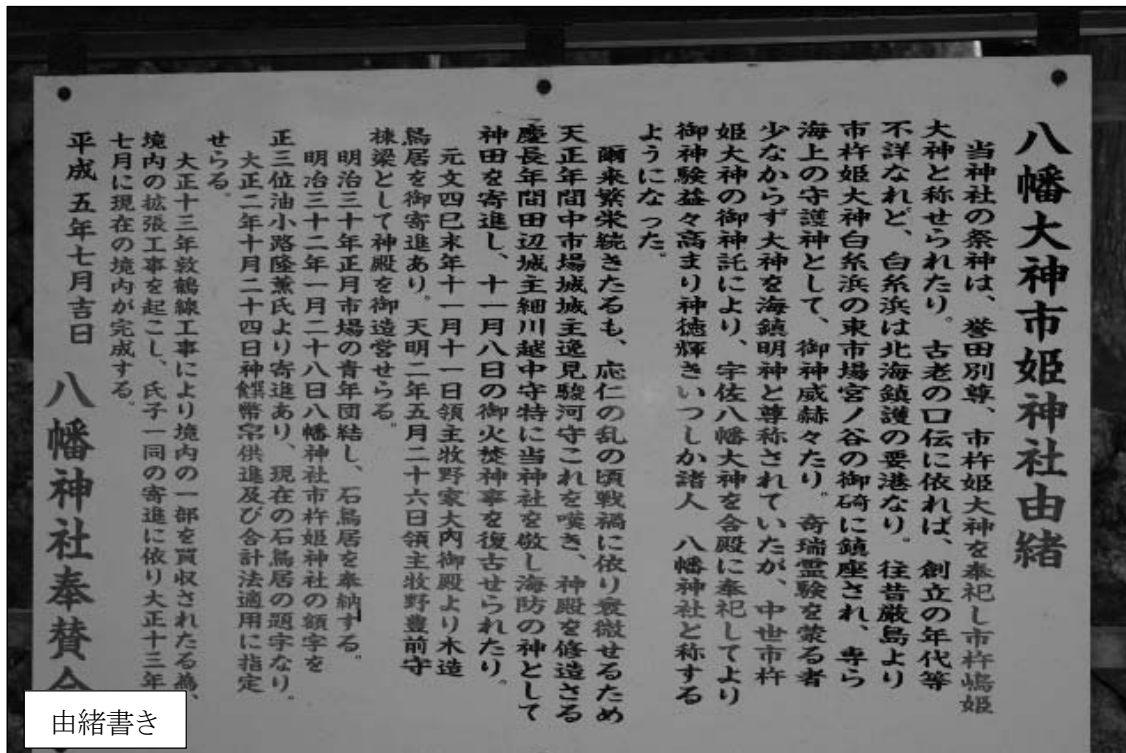 八幡大神市姫神社由緒
当神社の祭神は、誉田別尊、市杵姫大神を奉祀し市杵嶋姫
大神と称せられたり。古老の口伝に依れば、創立の年代等
不詳なれど、白糸浜は北海鎮護の要港なり。往昔厳島より
市杵姫大神白糸浜の東市場宮ノ谷の御碕に鎮座され、専ら
海上の守護神として、御神威赫々たり。奇瑞霊験を蒙る者
少なからず大神を海鎮明神と尊称されていたが、中世市杵
姫大神の御神託により、宇佐八幡大神を合殿に奉祀してより
御神験益々高まり神徳輝きいつしか諸人 八幡神社と称する
ようになった。
爾来繁栄続きたるも、応仁の乱の頃戦禍に依り衰微せるため
天正年間中市場城城主逸見駿河守これを嘆き、神殿を修造さる
慶長年間田辺城主細川越中守特に当神社を敬し海防の神として
神田を寄進し、十一月八日の御火焚神事を復古せられたり。
元文四巳未年十一月十一日領主牧野家大内御殿より木造
鳥居を御寄進あり。天明二年五月二十六日領主牧野豊前守
棟梁として神殿を御造営せらる。
明治三十年正月市場の青年団結し、石鳥居を奉納する。
明治三十二年一月二十八日八幡神社市杵姫神社の額字を
正三位油小路隆薫氏より寄進あり、現在の石鳥居の題字なり。
大正二年十月二十四日神饌幣帛供進及び会計法適用に指定
せらる。
大正十三年敦鶴線工事により境内の一部を買収されたる為、
境内の拡張工事を起こし、氏子一同の寄進に依り大正十三年
七月に現在の境内が完成する。
平成 五年七月吉日 八幡神社奉賛会
由緒書き